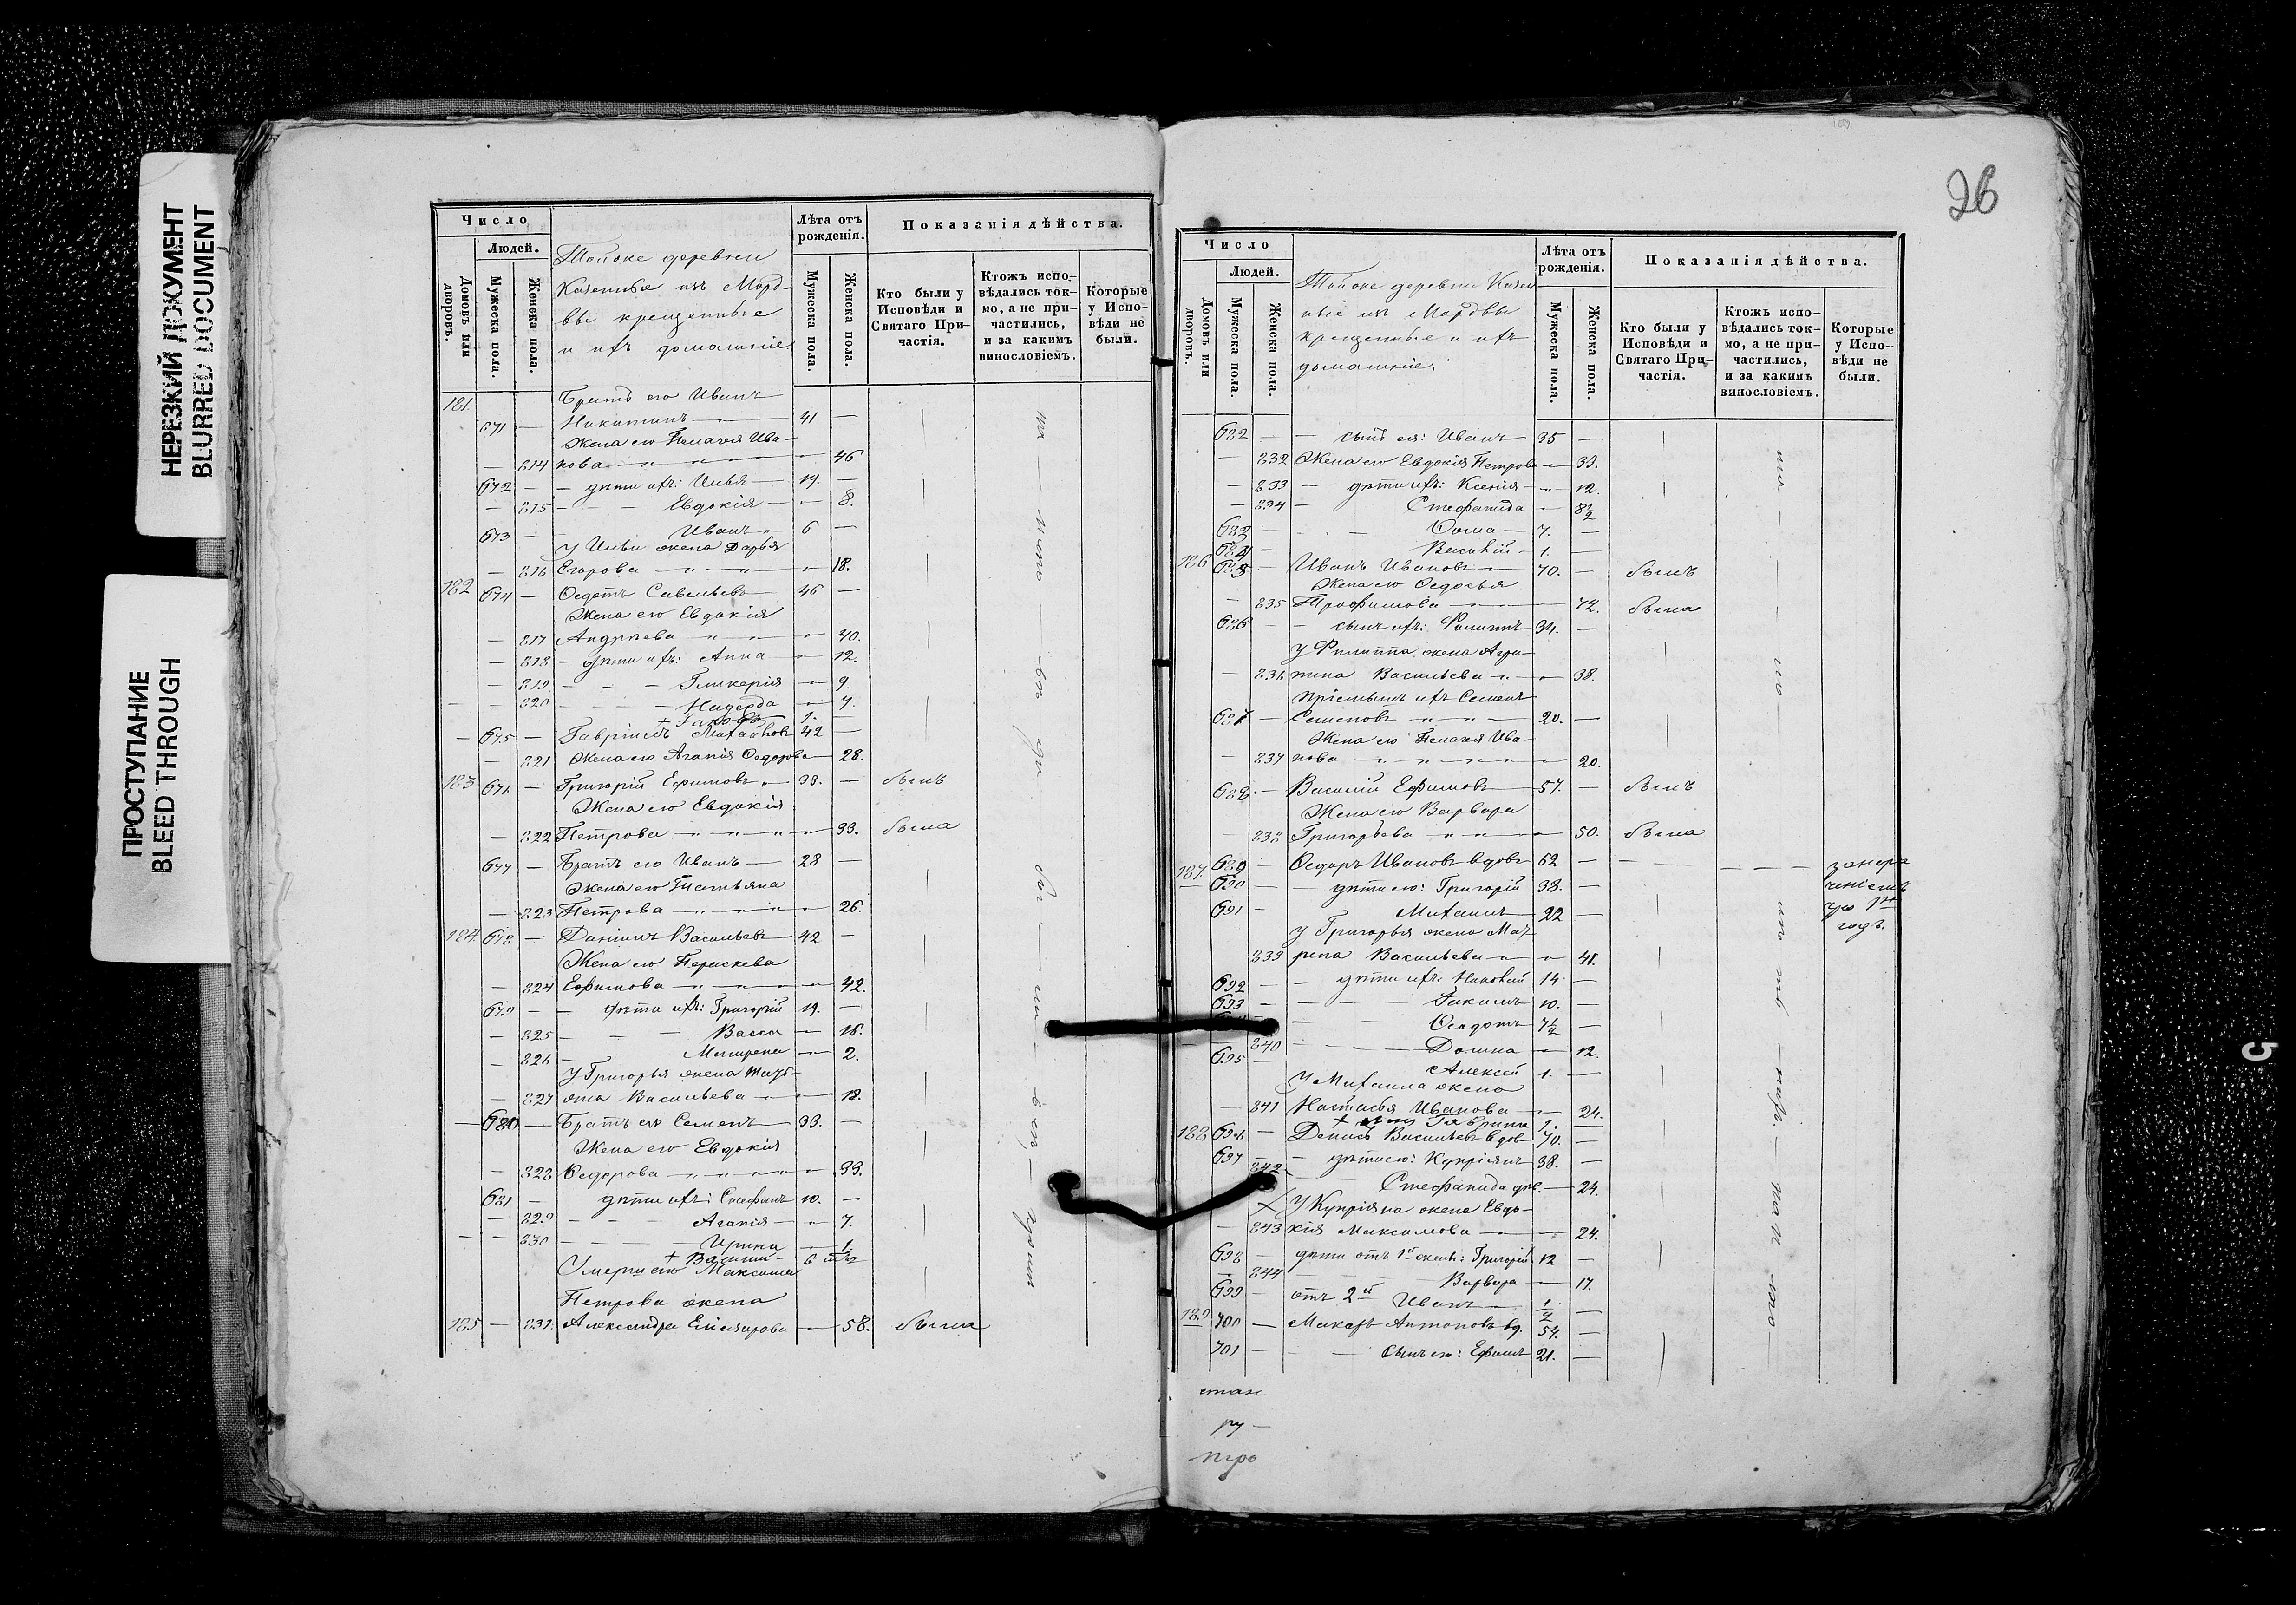 НЕРЕЗКИЙ ДОКУМЕНТ
BLURRED DOCUMENT
ПРОСТУПАНИЕ
BLEED THROUGH
Число
Людей.
Домовъ или дворовъ.
Мужеска пола.
Женска пола.
Тойже деревни
Казенные изъ Морд-
вы крещенные
и ихъ домашніе
Лѣта отъ рожденія.
Мужеска пола.
Женска пола.
Показанія дѣйства.
Кто были у Исповѣди и Святаго Причастія.
Ктожъ исповѣдались токмо, а не причастились, и за какимъ винословіемъ.
Которые у Исповѣди не были.
181. Братъ его Иванъ
671 — Никитинъ — 41 —
Жена его Пелагея Ива-
— 814 нова — 46
672 — дѣти ихъ: Илья — 19. —
— 815 — Евдокія — 8.
673 — Иванъ 6 —
У Ильи жена Дарья
— 816 Егорова — 18.
182 674 — Федотъ Савельевъ 46 —
Жена его Евдокія
— 817 Андреева — 40.
— 818 — дѣти ихъ: Анна — 12.
— 819 — Гликерія — 9.
— 820 — Надежда — 4.
+ 1. —
— 675 — Гавріилъ Михайловъ 42 —
— 821 Жена его Агапія Федорова — 28.
183 676 — Григорій Ефимовъ 38. — былъ
Жена его Евдокія
— 822 Петрова — 33. была
677 — Братъ его Иванъ — 28 —
Жена его Татьяна
— 823 Петрова — 26.
184. 678 — Даніилъ Васильевъ 42 —
Жена его Параскева
— 824 Ефимова — 42.
679 — дѣти ихъ: Григорій 19. —
— 825 — Васса — 16.
— 826 — Матрена — 2.
У Григорья жена Тать-
— 827 яна Васильева — 18.
— 680 — Братъ его Семенъ — 33. —
Жена его Евдокія
— 828 Федорова — 33.
681 — дѣти ихъ: Стефанъ 10. —
— 829 — Агапія — 7.
— 830 — Ирина — 1.
+ Василій 6
Умершаго Максима
Петрова жена
185 — 831. Александра — 58. была
26
Число
Людей.
Домовъ или дворовъ.
Мужеска пола.
Женска пола.
Тойже деревни Казен
ные изъ Мордвы
крещенные и ихъ
домашніе.
Лѣта отъ рожденія.
Мужеска пола.
Женска пола.
Показанія дѣйства.
Кто были у Исповѣди и Святаго Причастія.
Ктожъ исповѣдались токмо, а не причастились, и за какимъ винословіемъ.
Которые у Исповѣди не были.
682 — — сынъ ея: Иванъ 35 —
— 832 Жена его Евдокія Петрова — 33.
— 833 — дѣти ихъ: Ксенія — 12.
— 834 — Стефанида — 8½
683 — Фома — 7. —
684 — Василій — 1. —
186 685 — Иванъ Ивановъ — 70. — былъ
Жена его Федосья
— 835 Трофимова — 72. была
686 — сынъ ихъ: Филиппъ 34. —
У Филиппа жена Агри-
— 836 пина Васильева — 38.
Пріемышъ ихъ Семенъ
687 — Семеновъ 20. —
Жена его Пелагея Ива-
— 837 нова — 20.
688. — Василій Ефимовъ — 57. — былъ
Жена его Варвара
— 838 Григорьева — 50. была
187. 689 — Федоръ Ивановъ вдовъ 62 —
690 — дѣти его: Григорій 38. —
691 — Михаилъ 22 —
годъ.
У Григорья жена Мат-
839 рена Васильева — 41.
692 — — дѣти ихъ: Николай 14. —
693 — Іакимъ 10. —
— Феодотъ 7½ —
840 — Домна — 12.
695 — Алексѣй 1. —
У Михаила жена
— 841 Настасья Иванова — 24.
+ 1. —
188 696 — Денисъ Васильевъ вдов 70. —
697 — дѣти его: Купріянъ 38. —
842 Стефанида дѣв. — 24.
У Купріяна жена Евдо-
— 843 кія Максимова — 24.
698 — дѣти отъ 1й жены: Григорій 12 —
844 Варвара — 17.
699 отъ 2й Иванъ ½ —
189 700 — Макаръ Антоновъ вд. 54. —
701 — — сынъ его: Ефимъ 21. —
ру —